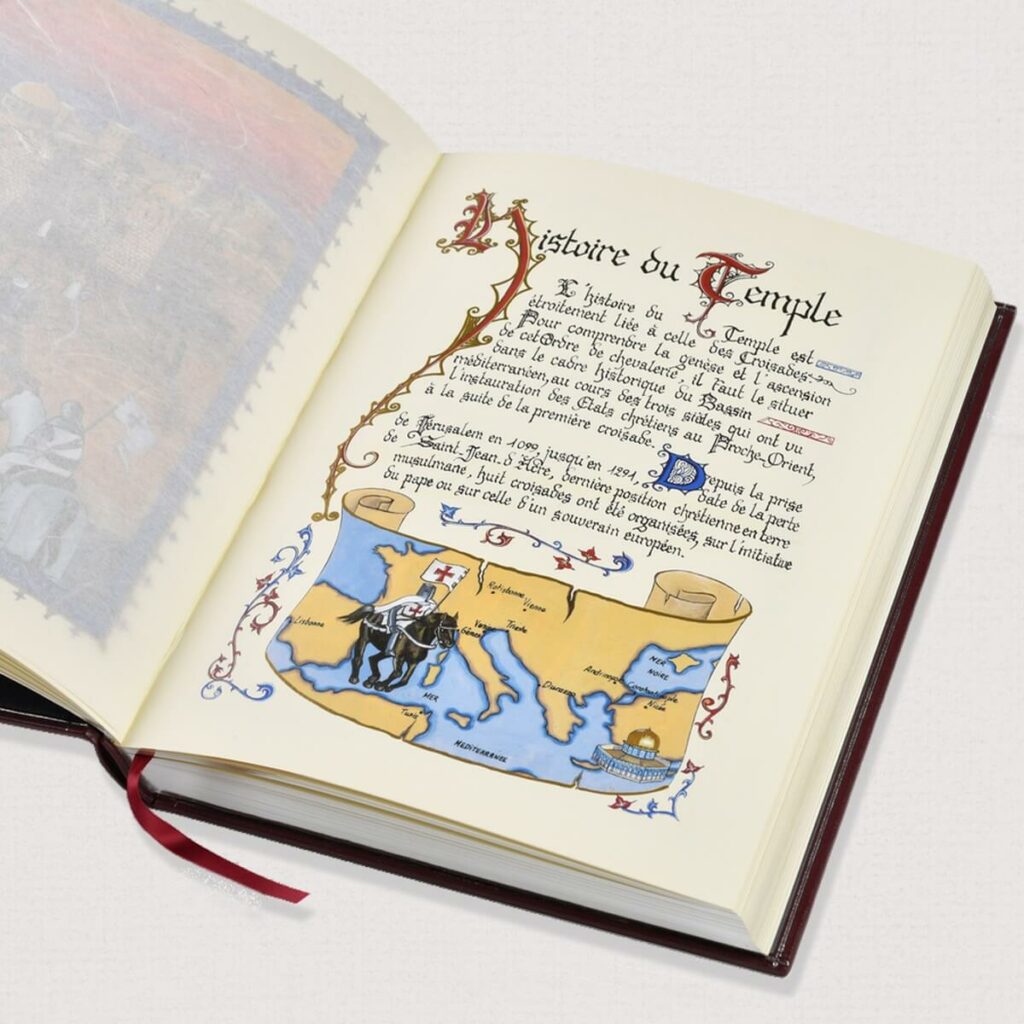 Histoire du Temple
L'histoire du Temple est
étroitement liée à celle des Croisades.
Pour comprendre la genèse et l'ascension
de cet Ordre de chevalerie, il faut le situer
dans le cadre historique du Bassin
méditerranéen, au cours des trois siècles qui ont vu
l'instauration des Etats chrétiens au Proche-Orient,
à la suite de la première croisade.
Depuis la prise
de Jérusalem en 1099, jusqu'en 1291, date de la perte
de Saint-Jean d'Acre, dernière position chrétienne en terre
musulmane, huit croisades ont été organisées, sur l'initiative
du pape ou sur celle d'un souverain européen.
Ratisbonne
Vienne
Lisbonne
Trieste
MER
NOIRE
Constantinople
Nicée
Durazzo
MER
Tunis
MEDITERRANEE